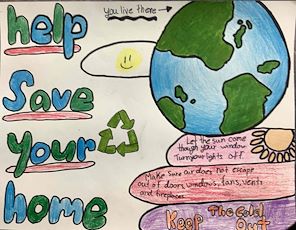 you live there →
help
Save
your
home
Let the sun come
though your window
Turn your lights off.
Make sure air does not escape
out of doors, windows, fans, vents
and fireplaces
Keep The Cold
Out